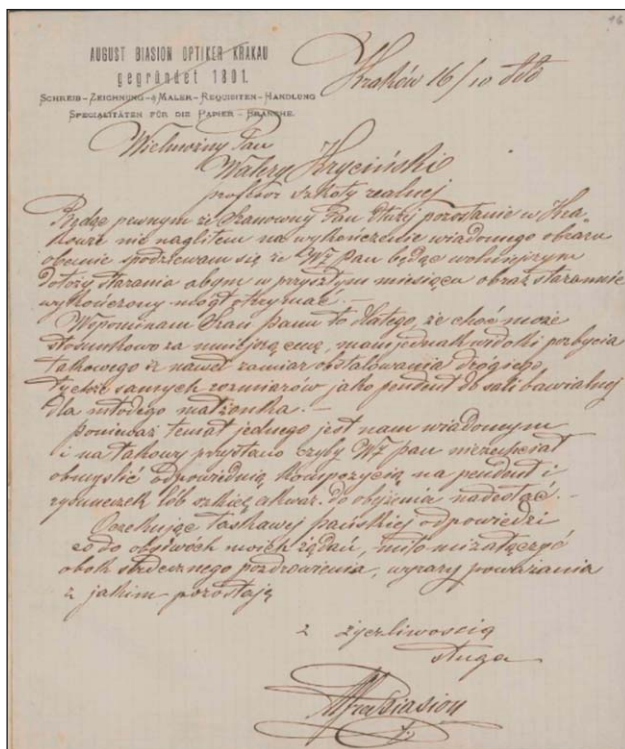 96
AUGUST BIASION OPTIKER KRAKAU
gegründet 1801.
SCHREIB-ZEICHNUNG-& MALER-REQUISITEN-HANDLUNG
SPECIALITÄTEN FÜR DIE PAPIER-BRANCHE.
Kraków 16/10
Wielmożny Pan
Walery Kryciński
profesor szkoły realnej
Będąc pewnym że Szanowny Pan dłużej pozostanie w Kra-
kowie nie nagliłem na wykończenie wiadomego obrazu
obecnie spodziewam się że WP Pan będąc wolniejszym
dołoży starania abym w przyszłym miesiącu obraz starannie
wykończony mógł otrzymać. —
Wspominam Szan Panu to dlatego, że choć może
stosunkowo za mniejszą cenę, mam jednak widoki pozbycia
takowego iż nawet zamiar obstalowania drógiego,
tychże samych rozmiarów jako pendent do sali bawialnej
dla młodego małżonka. —
Ponieważ temat jednego jest nam wiadomym
i na takowy przystano czyby WP Pan niezechciał
obmyślić odpowiednią kompozycią na pendent i
rysuneczek lób szkic akwar. do obejrzenia nadesłać. —
Oczekując łaskawej pańskiej odpowiedzi
co do obydwóch moich żądań, miło mi załączyć
obok serdecznego pozdrowienia, wyrazy poważania
z jakim pozostają
z życzliwością
sługa
Biasion